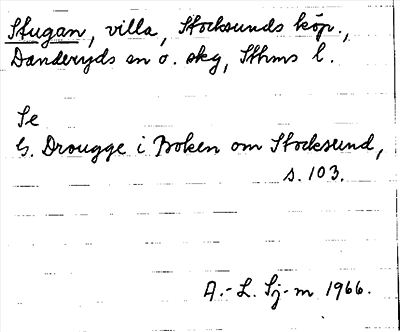 Stugan, villa, Stocksunds köp.,
Danderyds sn o. skg, Sthms l.
Se
G. Drougge i Boken om Stocksund,
s. 103.
A.-L. Sj-m 1966.